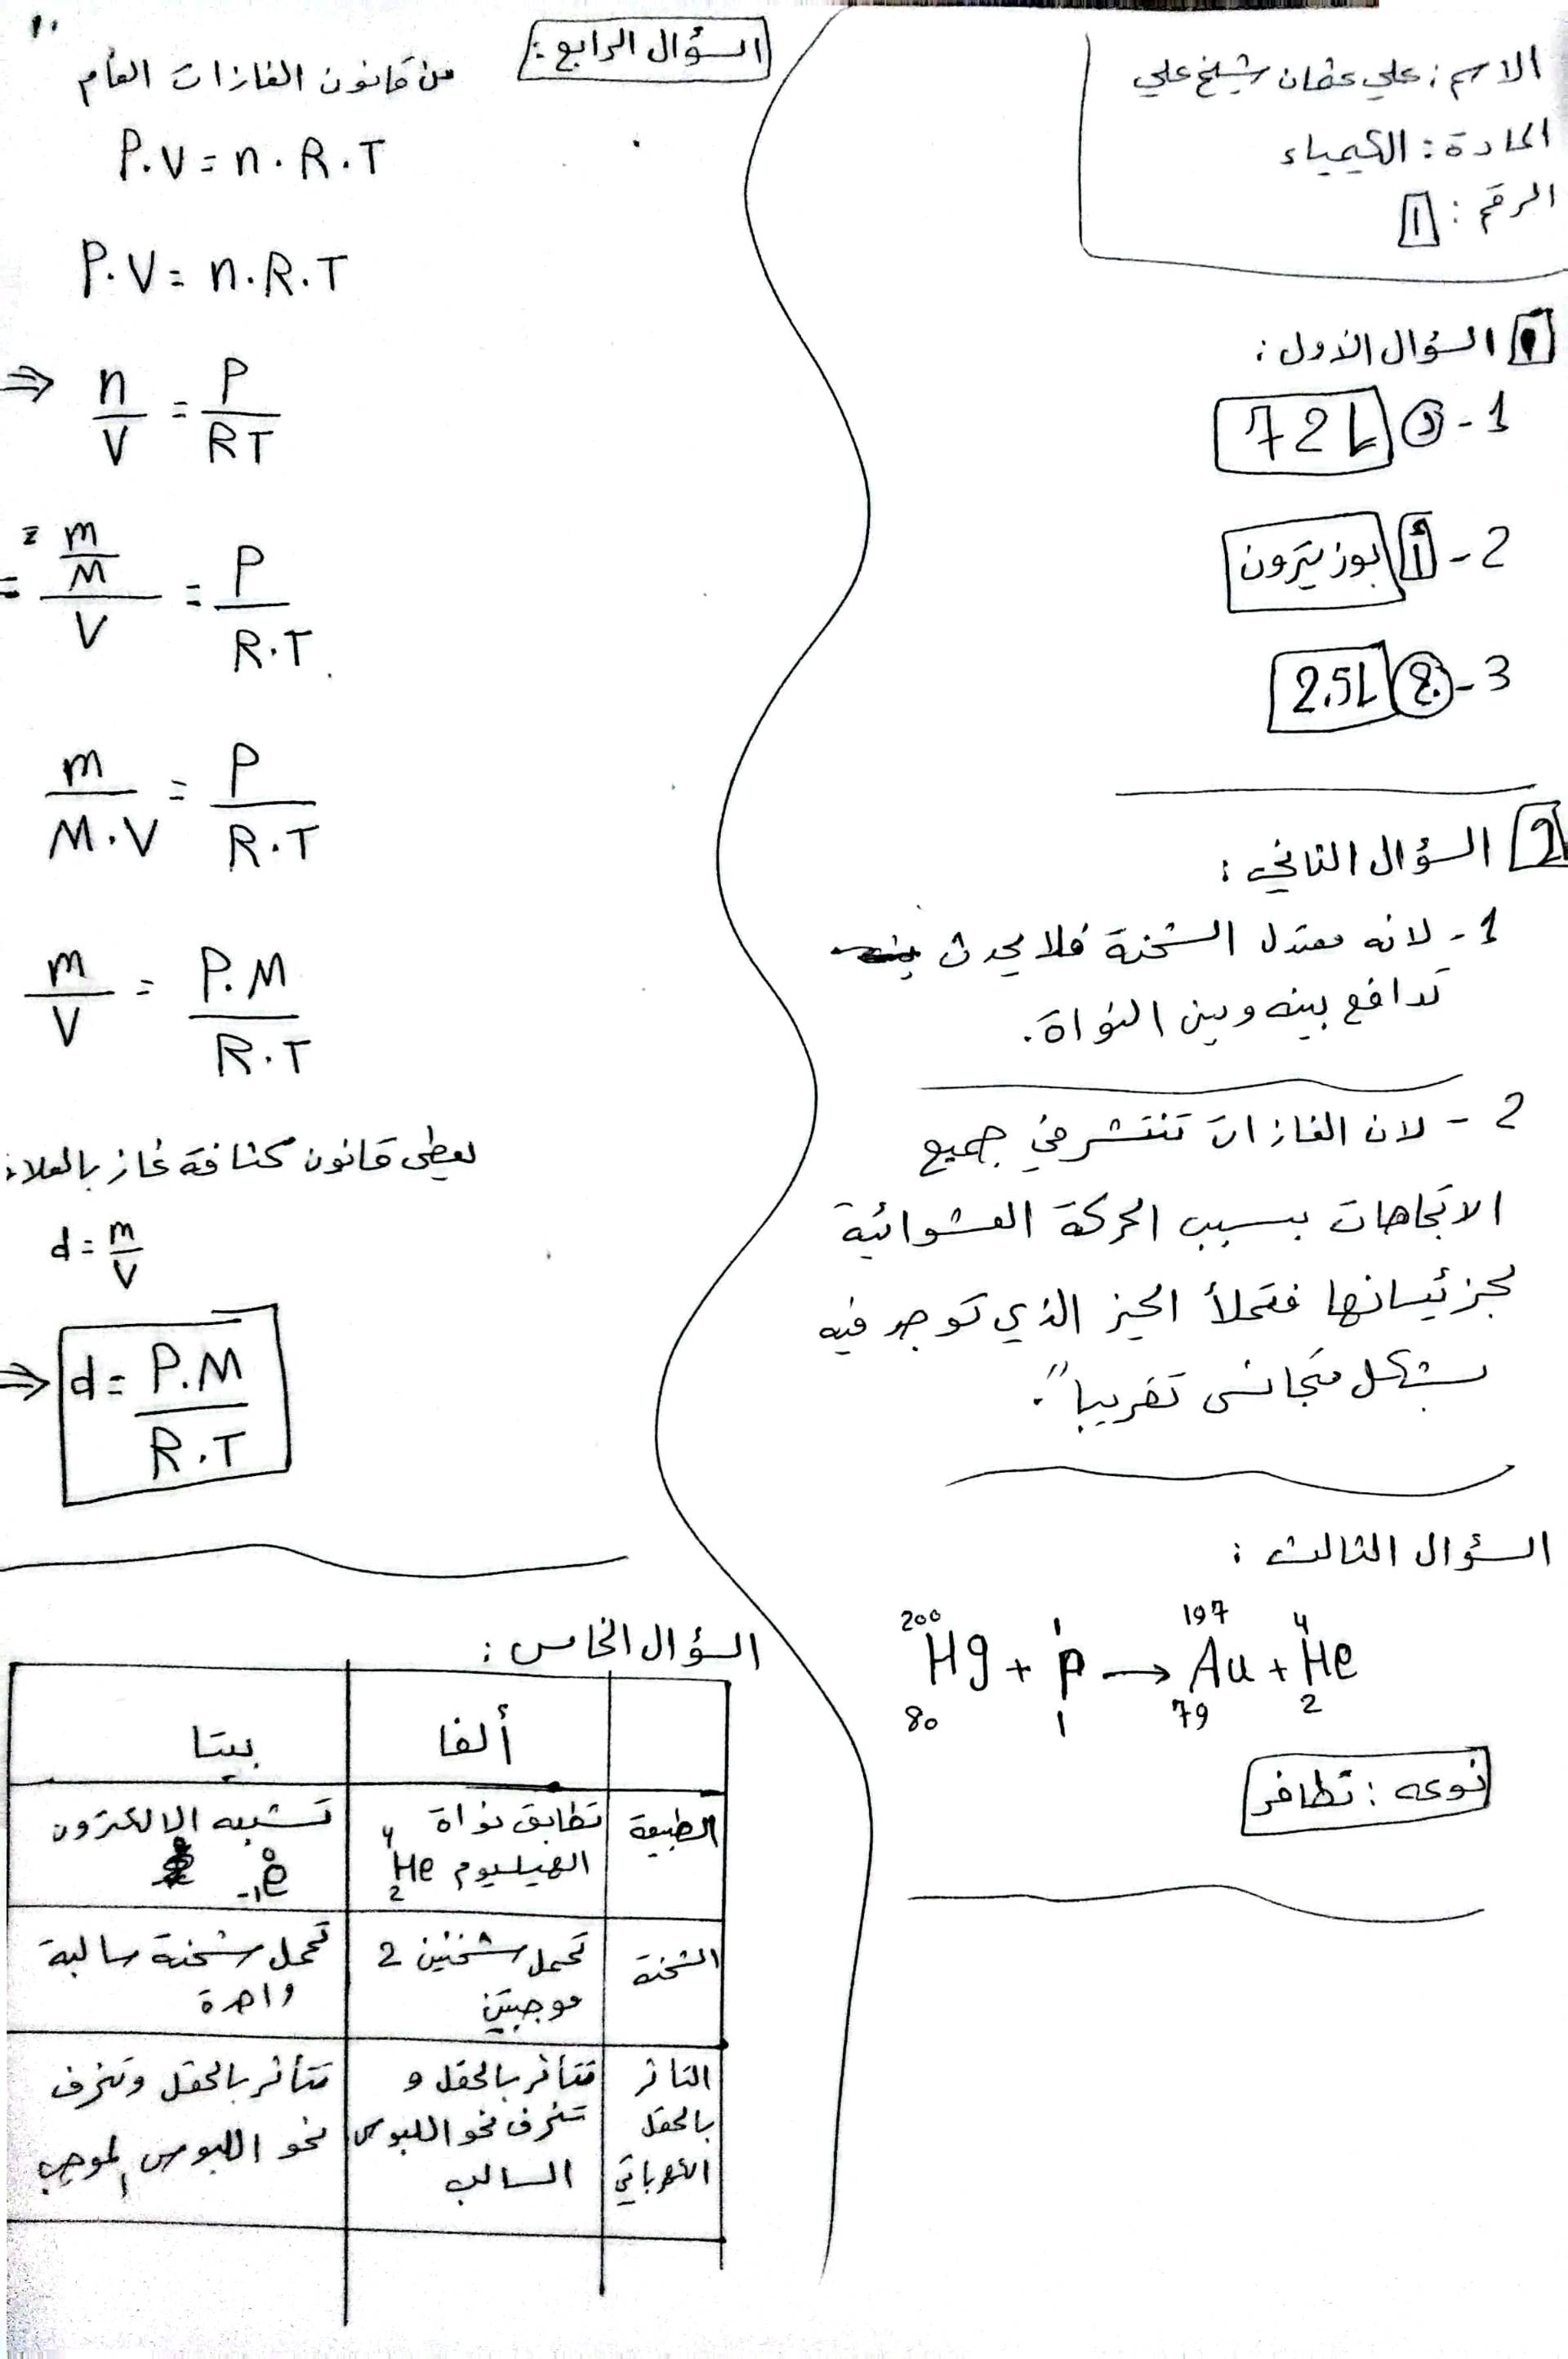 الاسم: علي عثمان شيخ علي
المادة: الكيمياء
الرقم: 1
1 السؤال الأول:
1- د 72 L
2- أ بوزيترون
3- 2.5L
2 السؤال الثاني:
1- لانه معتدل الشحنة فلا يحدث
تدافع بينه وبين النواة.
2- لان الغازات تنتشر في جميع
الاتجاهات بسبب الحركة العشوائية
لجزئياتها فتملأ الحيز الذي توجد فيه
بشكل متجانس تقريباً.
السؤال الثالث:
²⁰⁰₈₀Hg + ¹₁p → ¹⁹⁷₇₉Au + ⁴₂He
نوعه: تطافر
السؤال الرابع:
من قانون الغازات العام
P.V = n.R.T
P.V = n.R.T
⇒ n/V = P/RT
= = (m/M)/V = P/R.T
m/M.V = P/R.T
m/V = P.M/R.T
يعطى قانون كثافة غاز
d = m/V
⇒ d = P.M/R.T
السؤال الخامس:
ألفا بيتا
الطبيعة تطابق نواة الهيليوم ⁴₂He تشبه الالكترون ⁰₋₁e
الشحنة تحمل شحنتين 2 موجبتين تحمل شحنة سالبة واحدة
التاثر بالحقل الكهربائي تتأثر بالحقل و تنحرف نحو اللبوس السالب تتأثر بالحقل وتنحرف نحو اللبوس الموجب